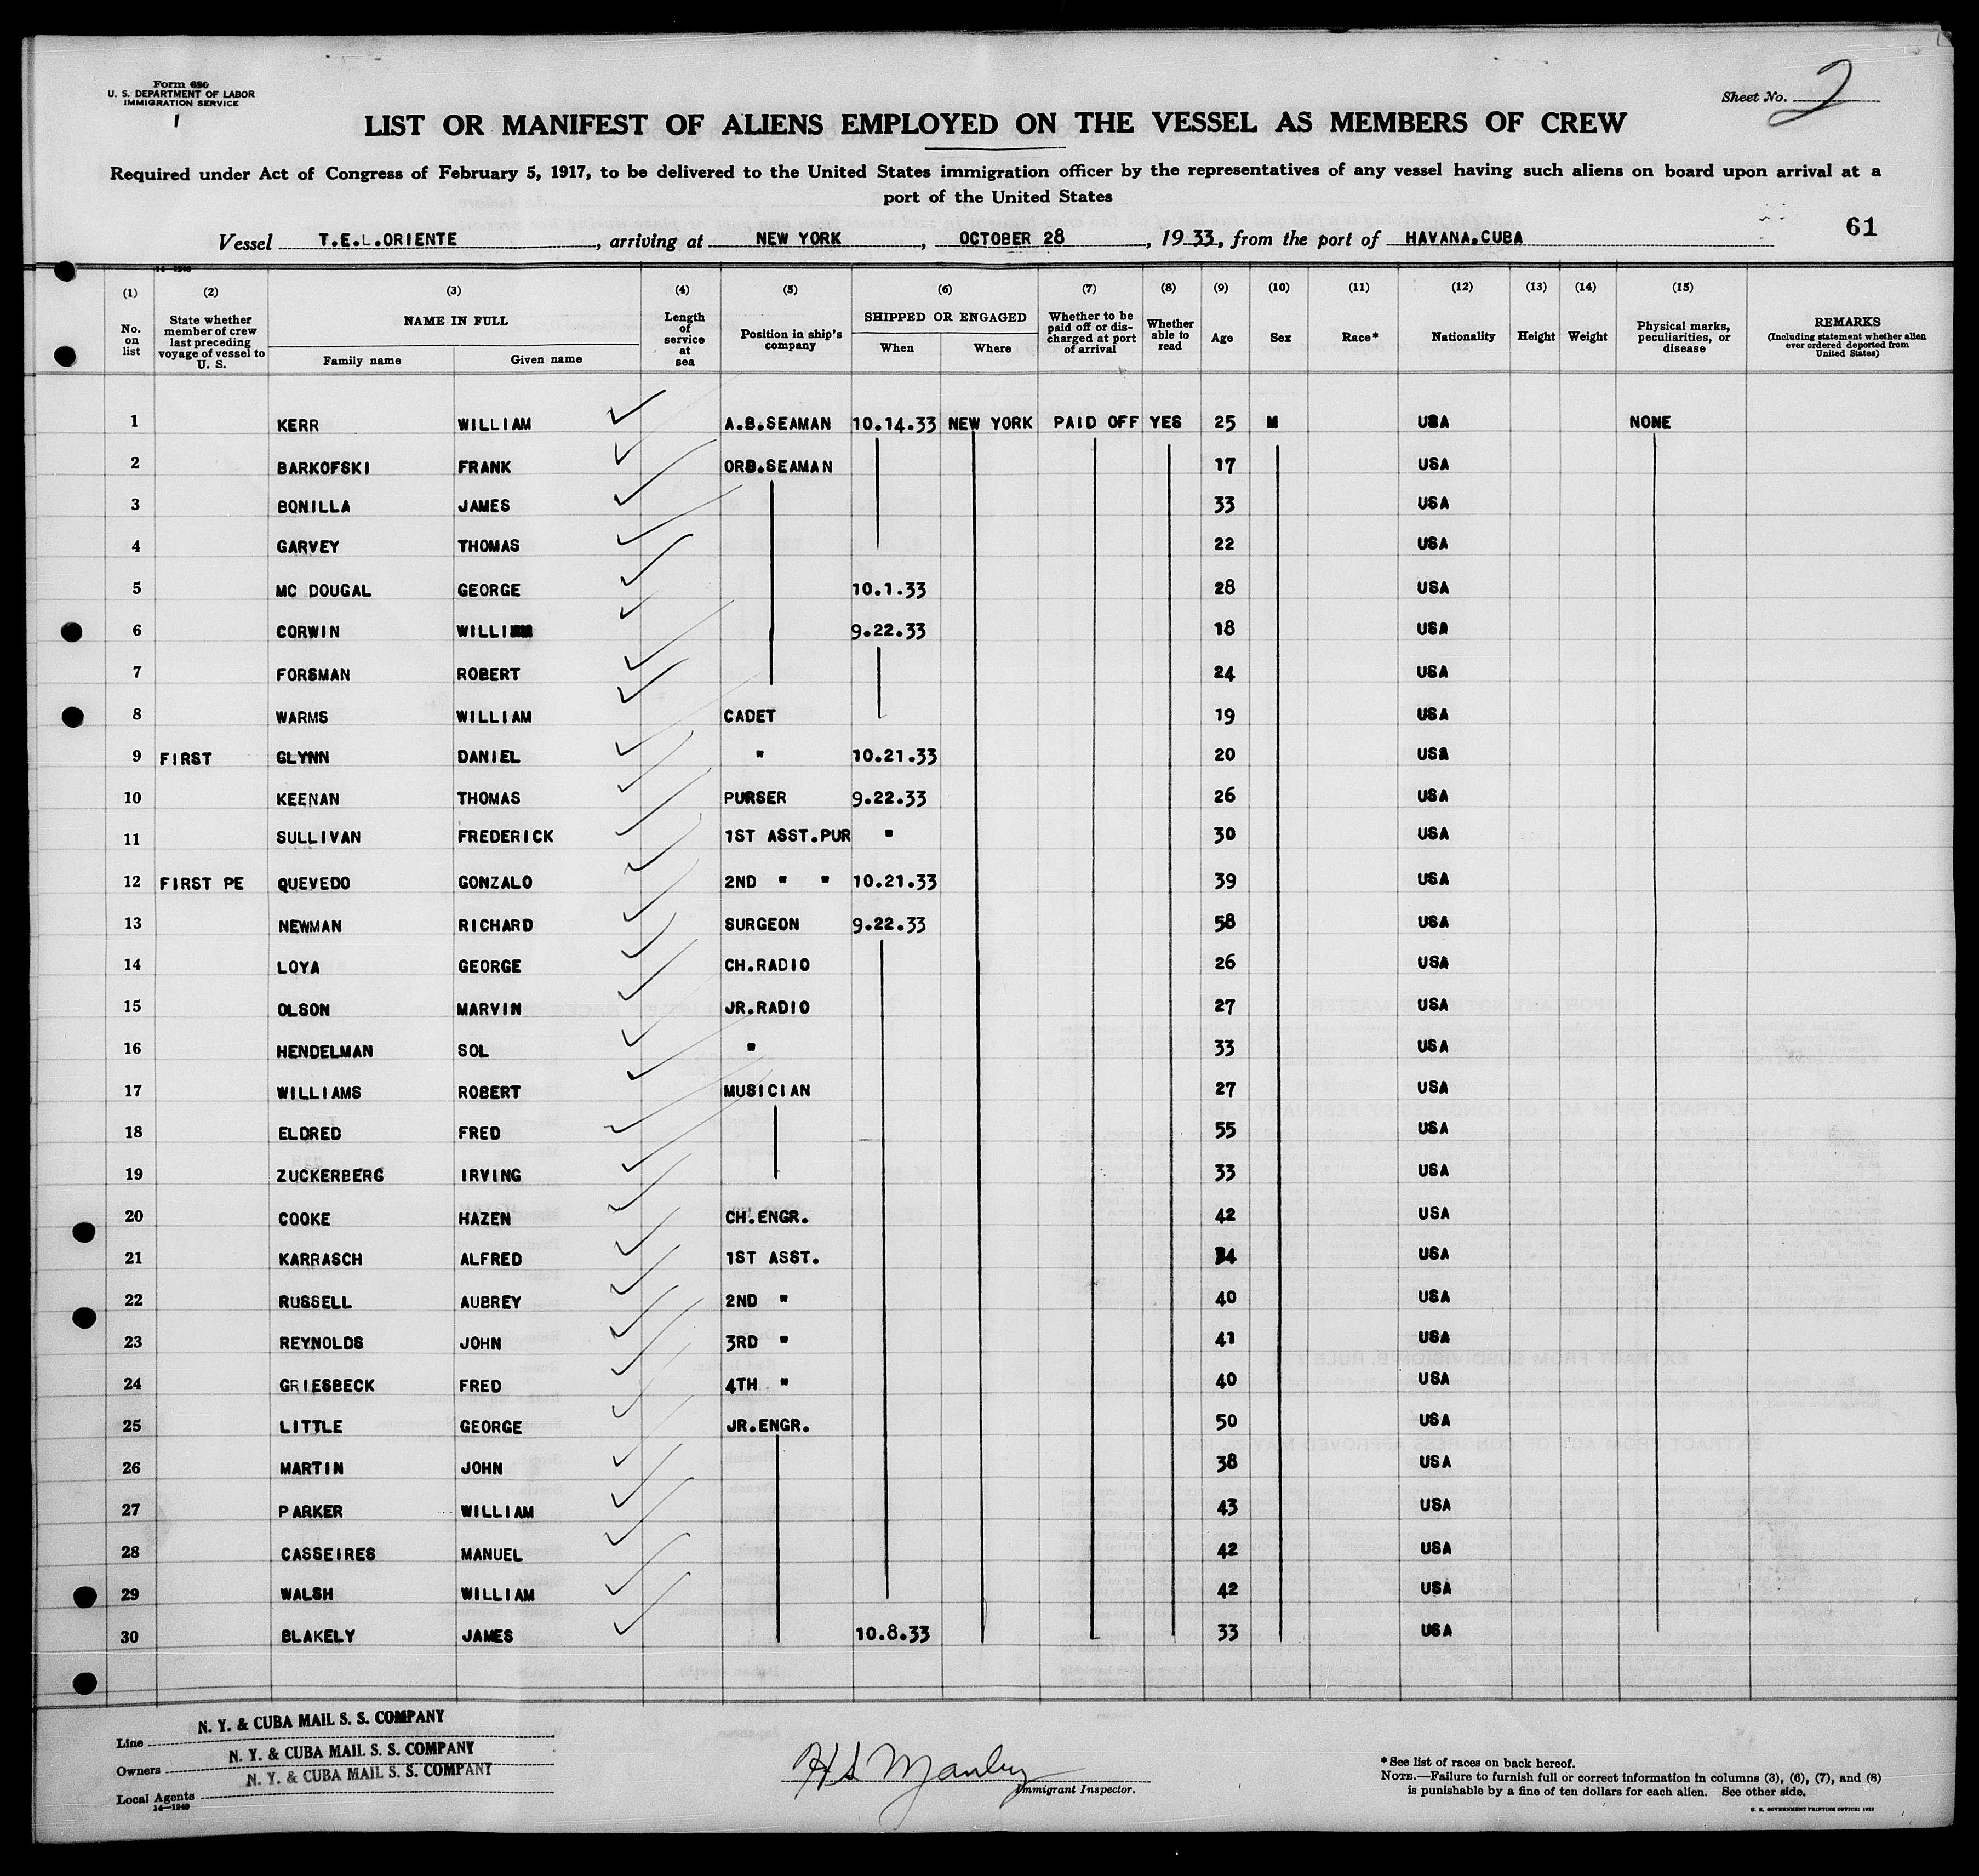 Form 680
U. S. DEPARTMENT OF LABOR
IMMIGRATION SERVICE
1
Sheet No. 2
LIST OR MANIFEST OF ALIENS EMPLOYED ON THE VESSEL AS MEMBERS OF CREW
Required under Act of Congress of February 5, 1917, to be delivered to the United States immigration officer by the representatives of any vessel having such aliens on board upon arrival at a
port of the United States
61
Vessel T.E.L.ORIENTE, arriving at NEW YORK, OCTOBER 28, 1933, from the port of HAVANA.CUBA
14—1940
(1) (2) (3) (4) (5) (6) (7) (8) (9) (10) (11) (12) (13) (14) (15)
No. on list | State whether member of crew last preceding voyage of vessel to U. S. | NAME IN FULL Family name Given name | Length of service at sea | Position in ship's company | SHIPPED OR ENGAGED When Where | Whether to be paid off or discharged at port of arrival | Whether able to read | Age | Sex | Race* | Nationality | Height | Weight | Physical marks, peculiarities, or disease | REMARKS (Including statement whether alien ever ordered deported from United States)
1 KERR WILLIAM A.B.SEAMAN 10.14.33 NEW YORK PAID OFF YES 25 M USA NONE
2 BARKOFSKI FRANK ORD.SEAMAN 17 USA
3 BONILLA JAMES 33 USA
4 GARVEY THOMAS 22 USA
5 MC DOUGAL GEORGE 10.1.33 28 USA
6 CORWIN WILLI 9.22.33 18 USA
7 FORSMAN ROBERT 24 USA
8 WARMS WILLIAM CADET 19 USA
9 FIRST GLYNN DANIEL " 10.21.33 20 USA
10 KEENAN THOMAS PURSER 9.22.33 26 USA
11 SULLIVAN FREDERICK 1ST ASST.PUR " 30 USA
12 FIRST PE QUEVEDO GONZALO 2ND " " 10.21.33 39 USA
13 NEWMAN RICHARD SURGEON 9.22.33 58 USA
14 LOYA GEORGE CH.RADIO 26 USA
15 OLSON MARVIN JR.RADIO 27 USA
16 HENDELMAN SOL " 33 USA
17 WILLIAMS ROBERT MUSICIAN 27 USA
18 ELDRED FRED 55 USA
19 ZUCKERBERG IRVING 33 USA
20 COOKE HAZEN CH.ENGR. 42 USA
21 KARRASCH ALFRED 1ST ASST. 34 USA
22 RUSSELL AUBREY 2ND " 40 USA
23 REYNOLDS JOHN 3RD " 41 USA
24 GRIESBECK FRED 4TH " 40 USA
25 LITTLE GEORGE JR.ENGR. 50 USA
26 MARTIN JOHN 38 USA
27 PARKER WILLIAM 43 USA
28 CASSEIRES MANUEL 42 USA
29 WALSH WILLIAM 42 USA
30 BLAKELY JAMES 10.8.33 33 USA
Line N. Y. & CUBA MAIL S. S. COMPANY
Owners N. Y. & CUBA MAIL S. S. COMPANY
Local Agents N. Y. & CUBA MAIL S. S. COMPANY
14—1940
H S Manley
Immigrant Inspector.
*See list of races on back hereof.
NOTE.—Failure to furnish full or correct information in columns (3), (6), (7), and (8)
is punishable by a fine of ten dollars for each alien. See other side.
U. S. GOVERNMENT PRINTING OFFICE: 1933